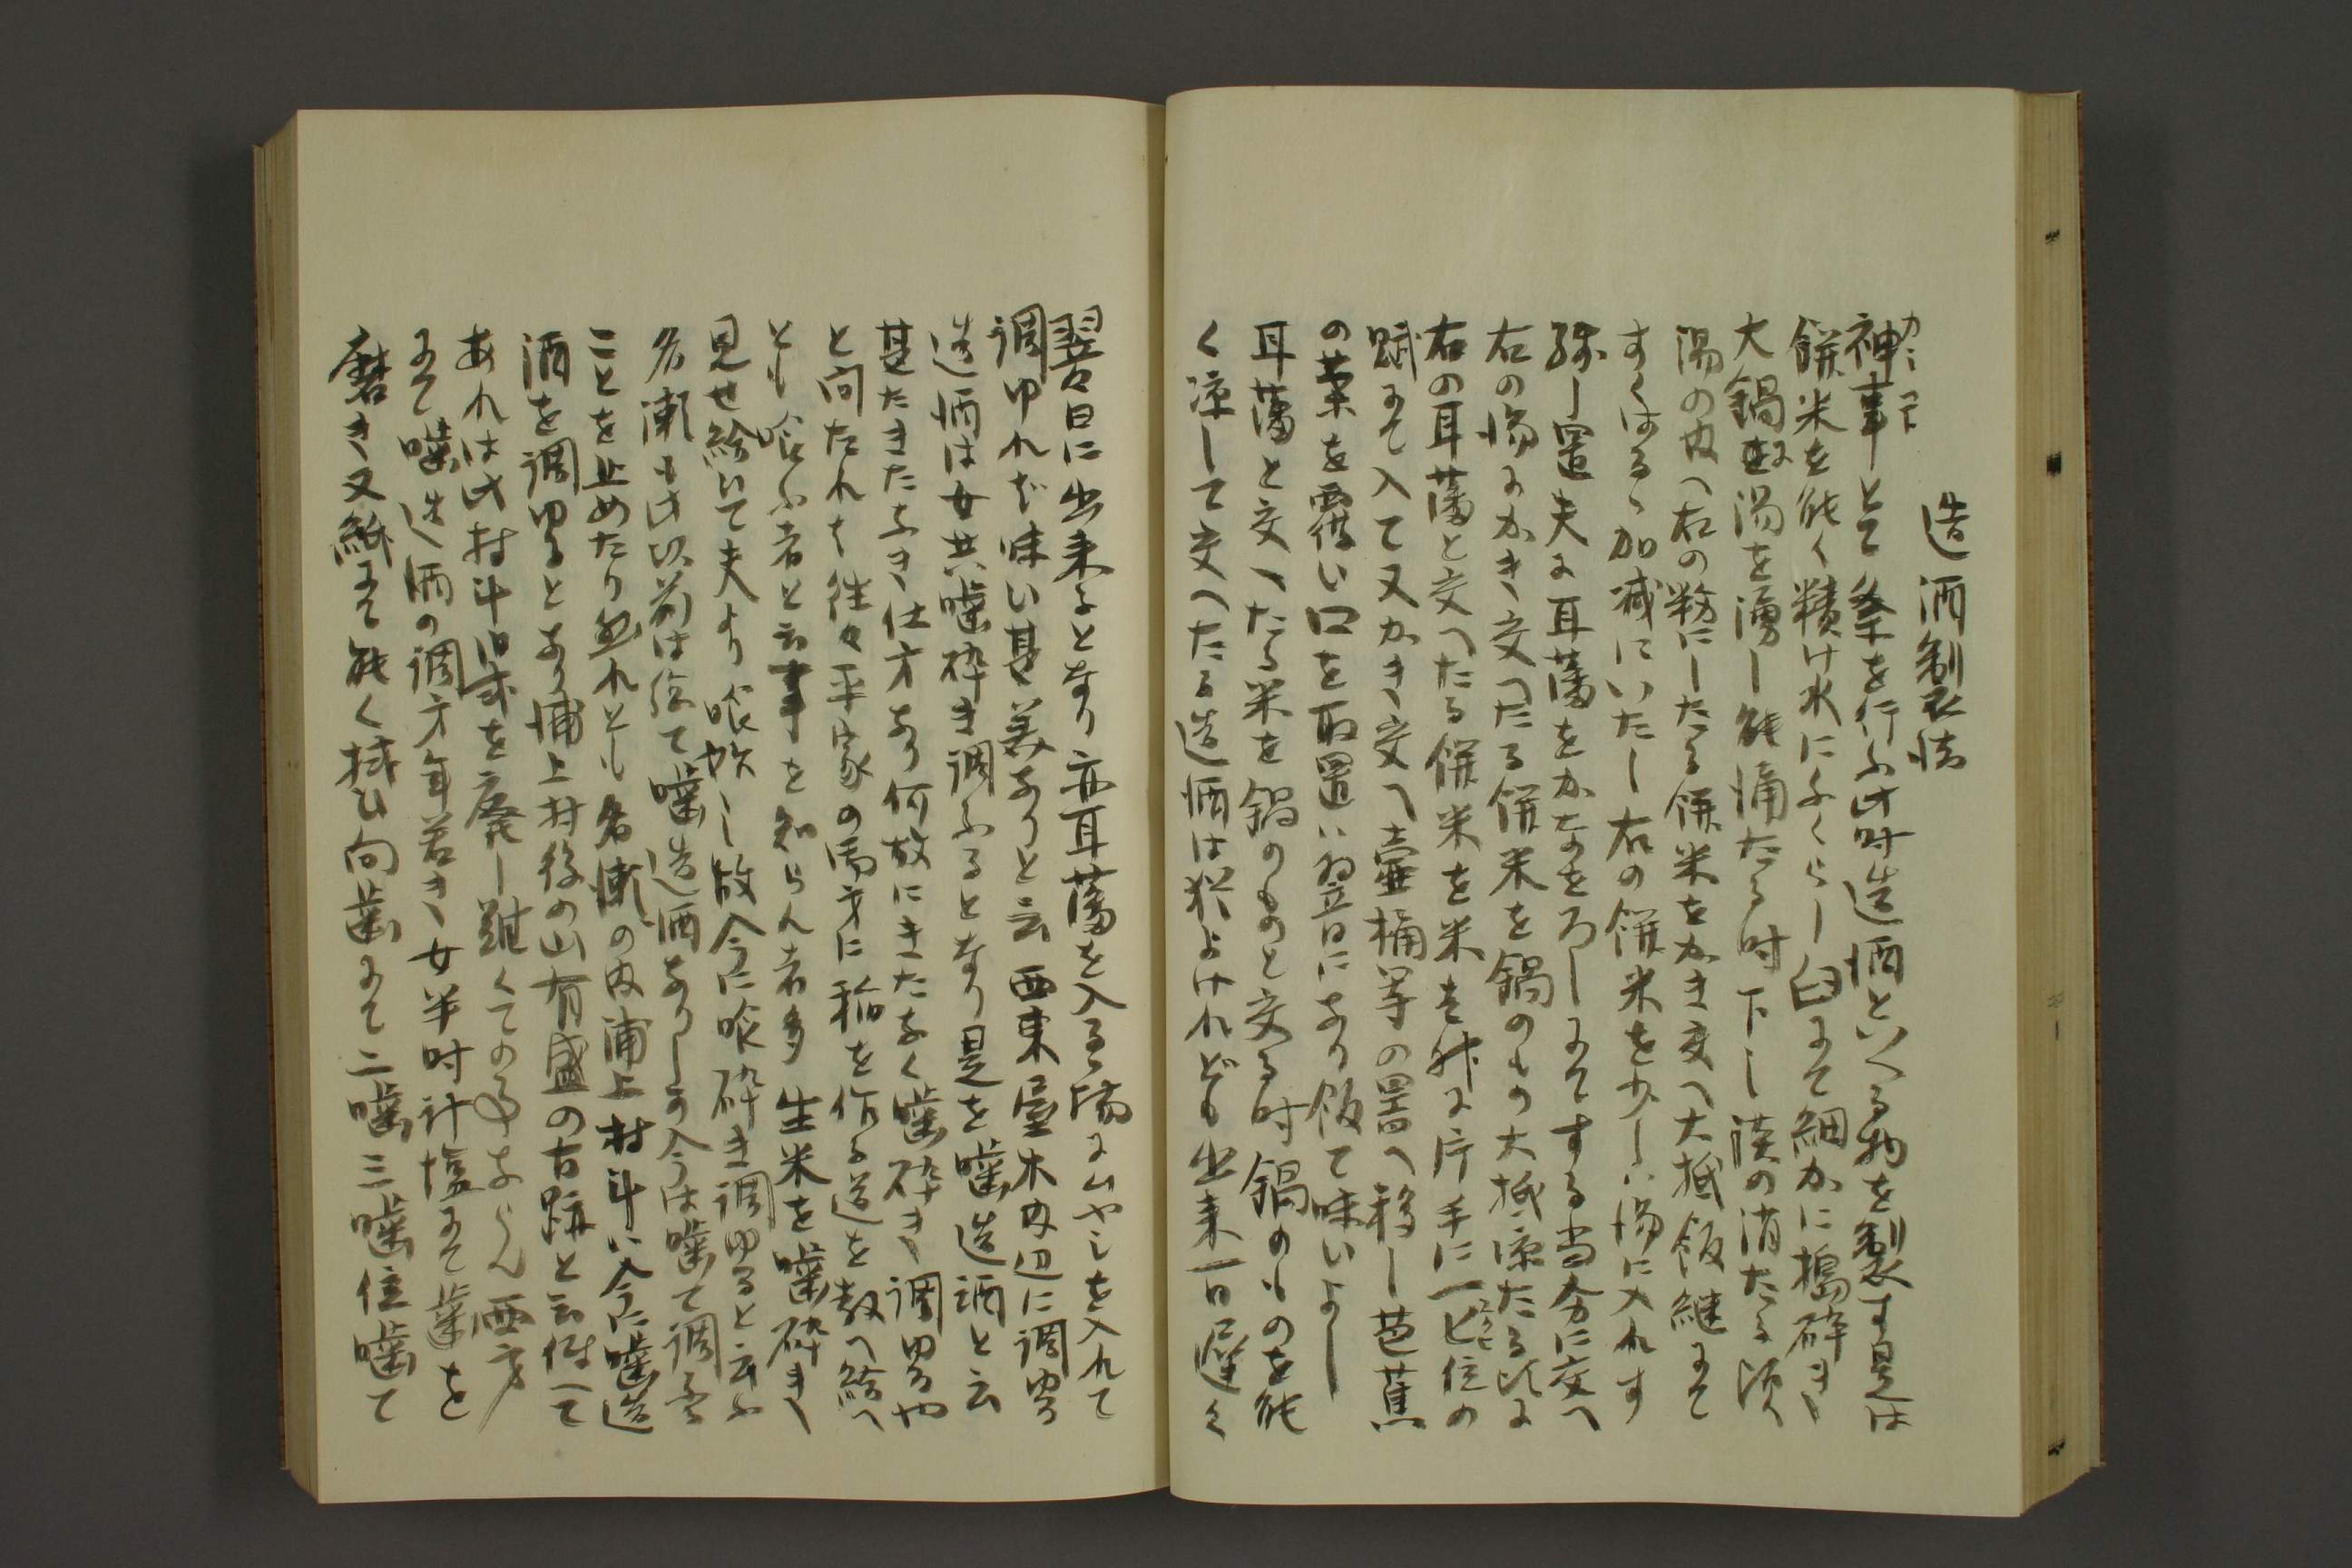 造酒製法
カミコト
神事とて祭を行ふ此時造酒といへる物を製す是は
餅米を能く精け水によくらし臼にて細かに搗砕き
大鍋に湯を湧し能沸たる時下し漠の消たる頃
湯の内へ右の粉にしたる餅米をかき交へ大抵飯継にて
すくはるゝ加減にいたし右の餅米を少しは湯に入れす
残し置夫に耳蕃をかなをろしにてする当分に交へ
右の湯にかき交へたる餅米を鍋のもの大抵凉たる比に
右の耳蕃と交へたる餅米を米壱升に片手に一匕位の
賦にて入て又かき交へ壷桶等の器へ移し芭蕉
の葉を覆い口を取置は翌日にあり飯て味いよし
耳蕃と交へたる米を鍋のものと交る時鍋のものを能
く凉して交へたる造酒は猶よけれども出来一日遅く
翌々日に出来るとなり亦耳蕃を入る揚にムヤシを入れて
調ゆれば味い甚美なりと云西東屋木内辺に調ゆる
造酒は女共噛砕き調ふるとなり是を噛造酒と云
甚たきたなき仕方なり何故にきたなく噛砕き調ゆるや
と問たれは往々平家の馬方に稲を作る道を教へ給へ
とも喰ふ者と云事を知らん者多生米を噛砕き
見せ給いて夫より喰始し故今に喰砕き調ゆると云ふ
名瀬も此以前は徐て噛造酒なりしか今は噛て調る
ことを止めたり然れとも名瀬の内浦上村斗は今に噛造
酒を調ゆるとなり浦上村後の山有盛の古跡と云伝へて
あれは此村斗旧式を廃し難くての事ならん西方
にて噛造酒の調方年若き女半時計塩にて歯を
磨き又紙にて能く拭ひ向歯にて二噛三噛位噛て